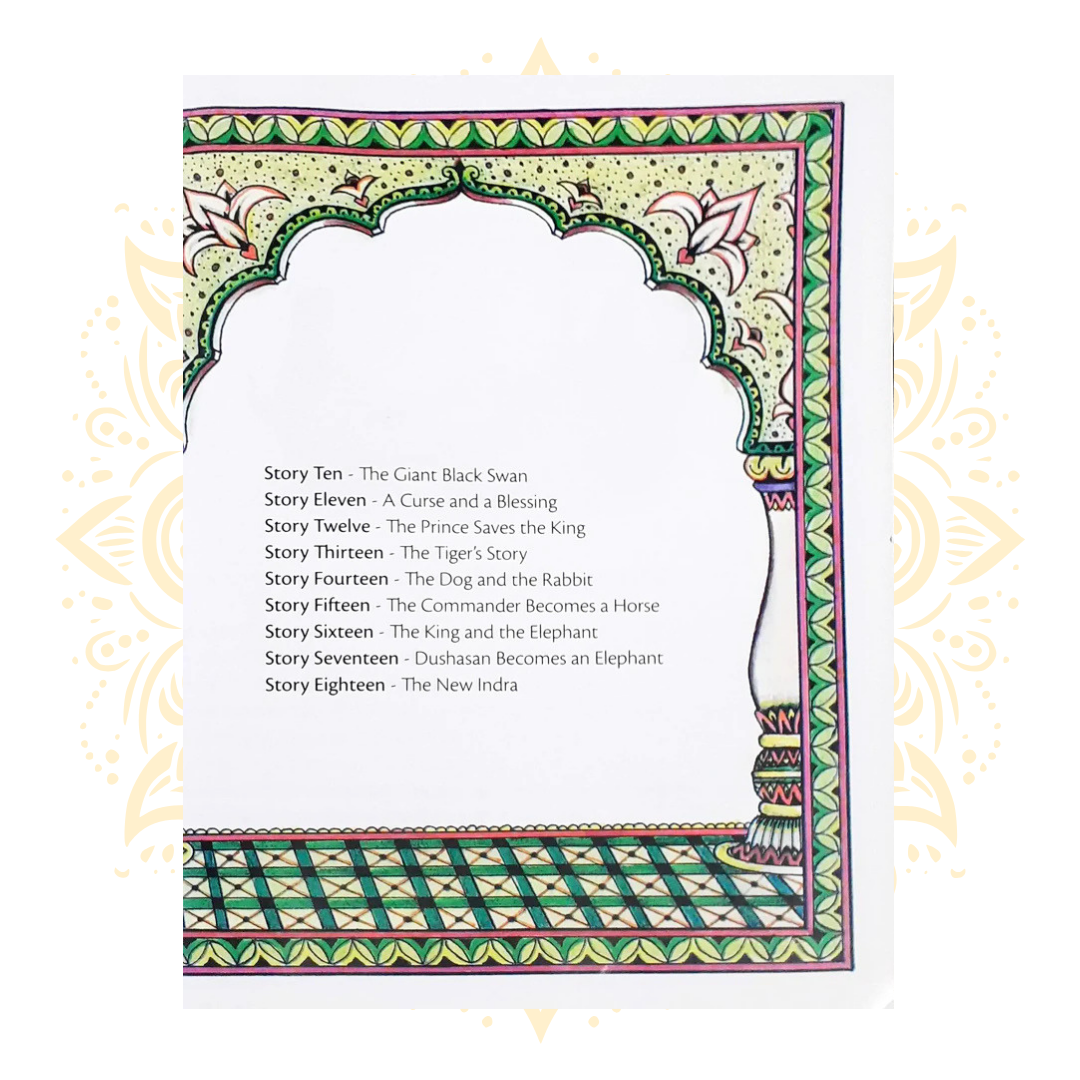 Story Ten - The Giant Black Swan
Story Eleven - A Curse and a Blessing
Story Twelve - The Prince Saves the King
Story Thirteen - The Tiger's Story
Story Fourteen - The Dog and the Rabbit
Story Fifteen - The Commander Becomes a Horse
Story Sixteen - The King and the Elephant
Story Seventeen - Dushasan Becomes an Elephant
Story Eighteen - The New Indra